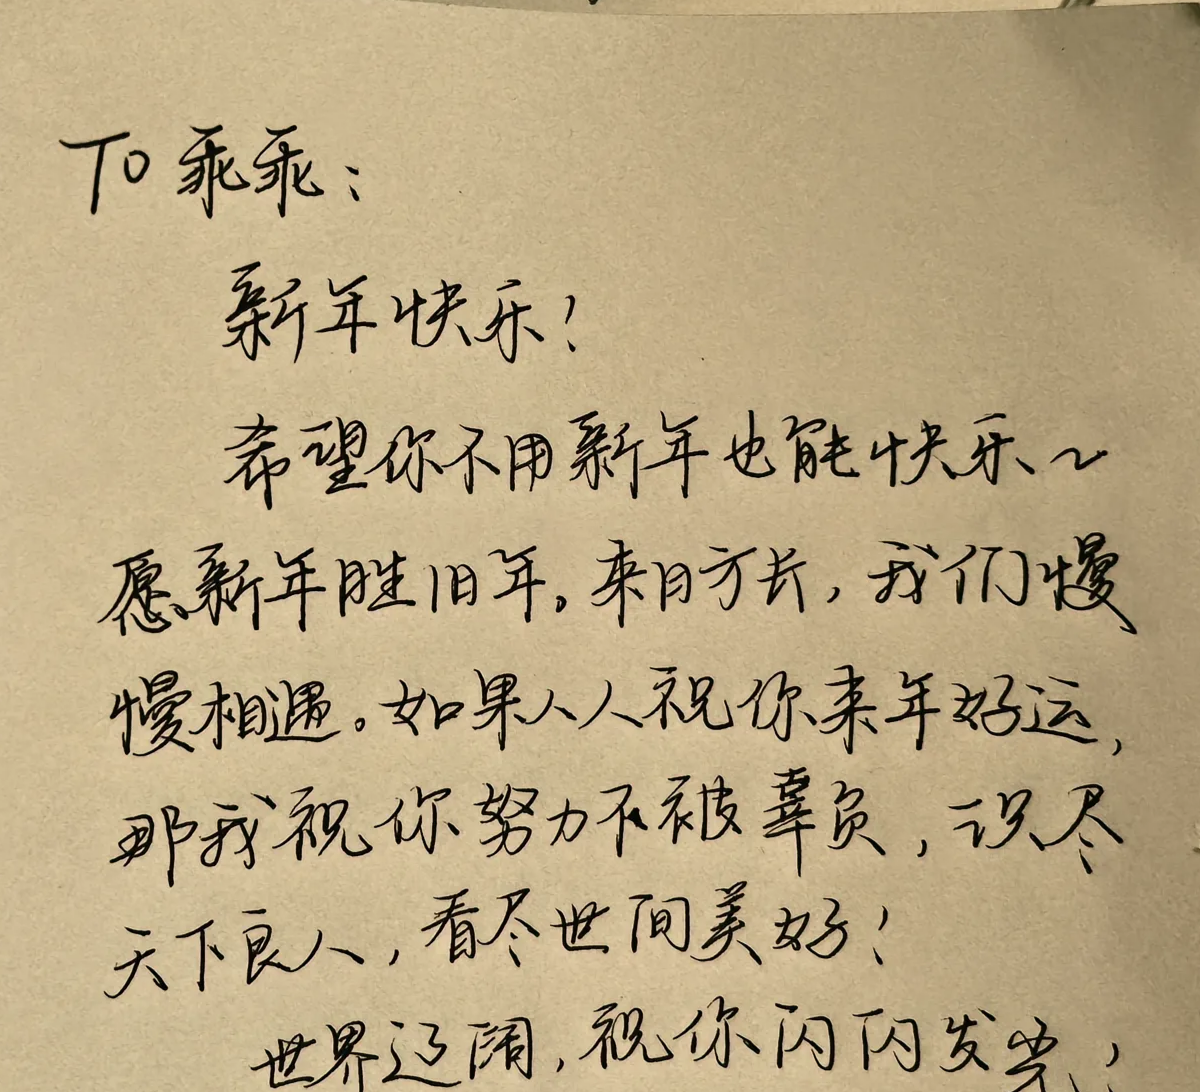 To 乖乖：
新年快乐！
希望你不用新年也能快乐～
愿新年胜旧年。来日方长，我们慢
慢相遇。如果人人祝你来年好运，
那我祝你努力不被辜负，识尽
天下良人，看尽世间美好！
世界辽阔，祝你闪闪发光，